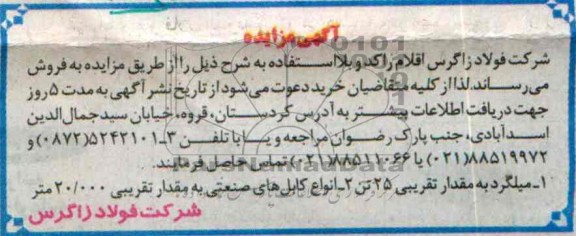 آگهی مزایده
شرکت فولاد زاگرس اقلام راکد و بلااستفاده به شرح ذیل را از طریق مزایده به فروش
می‌رساند، لذا از کلیه متقاضیان خرید دعوت می‌شود از تاریخ نشر آگهی به مدت ۵ روز
جهت دریافت اطلاعات بیشتر به آدرس کردستان، قروه، خیابان سید جمال‌الدین
اسدآبادی، جنب پارک رضوان مراجعه و یا با تلفن ۳-۵۲۴۲۱۰۱(۰۸۷۲) و
۸۸۵۱۹۹۷۲(۰۲۱) یا ۸۸۵۱۱۰۶۶(۰۲۱) تماس حاصل فرمایند.
۱-میلگرد به مقدار تقریبی ۲۵ تن ۲-انواع کابل‌های صنعتی به مقدار تقریبی ۲۰/۰۰۰ متر
شرکت فولاد زاگرس